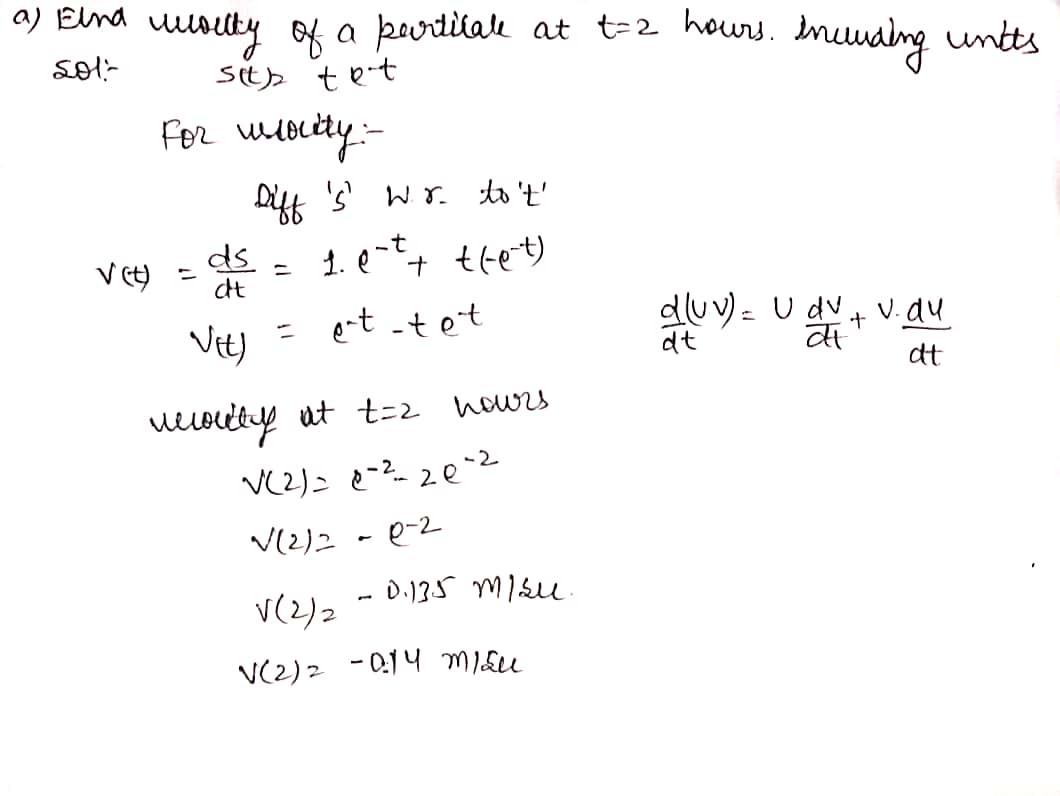 a) Find velocity of a particale at t=2 hours. Including units
Sol:- S(t)= t e^-t
For velocity:-
Diff 's' w r. to 't'
V(t) = ds/dt = 1. e^-t + t(-e^-t)
V(t) = e^-t - t e^-t
d(UV)/dt = U dV/dt + V. dU/dt
velocity at t=2 hours
V(2)= e^-2 - 2e^-2
V(2)= - e^-2
V(2)= - 0.135 m/sec.
V(2)= -0.14 m/sec